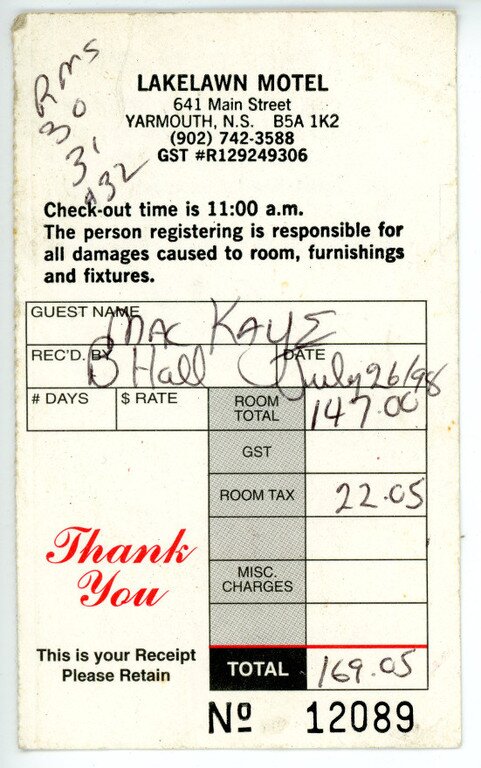 RMS
30
31
+32
LAKELAWN MOTEL
641 Main Street
YARMOUTH, N.S. B5A 1K2
(902) 742-3588
GST #R129249306
Check-out time is 11:00 a.m.
The person registering is responsible for
all damages caused to room, furnishings
and fixtures.
GUEST NAME Mac KAYE
REC'D. BY B Hall DATE July 26/98
# DAYS $ RATE ROOM TOTAL 147.00
GST
ROOM TAX 22.05
MISC. CHARGES
Thank
You
This is your Receipt
Please Retain
TOTAL 169.05
Nº 12089